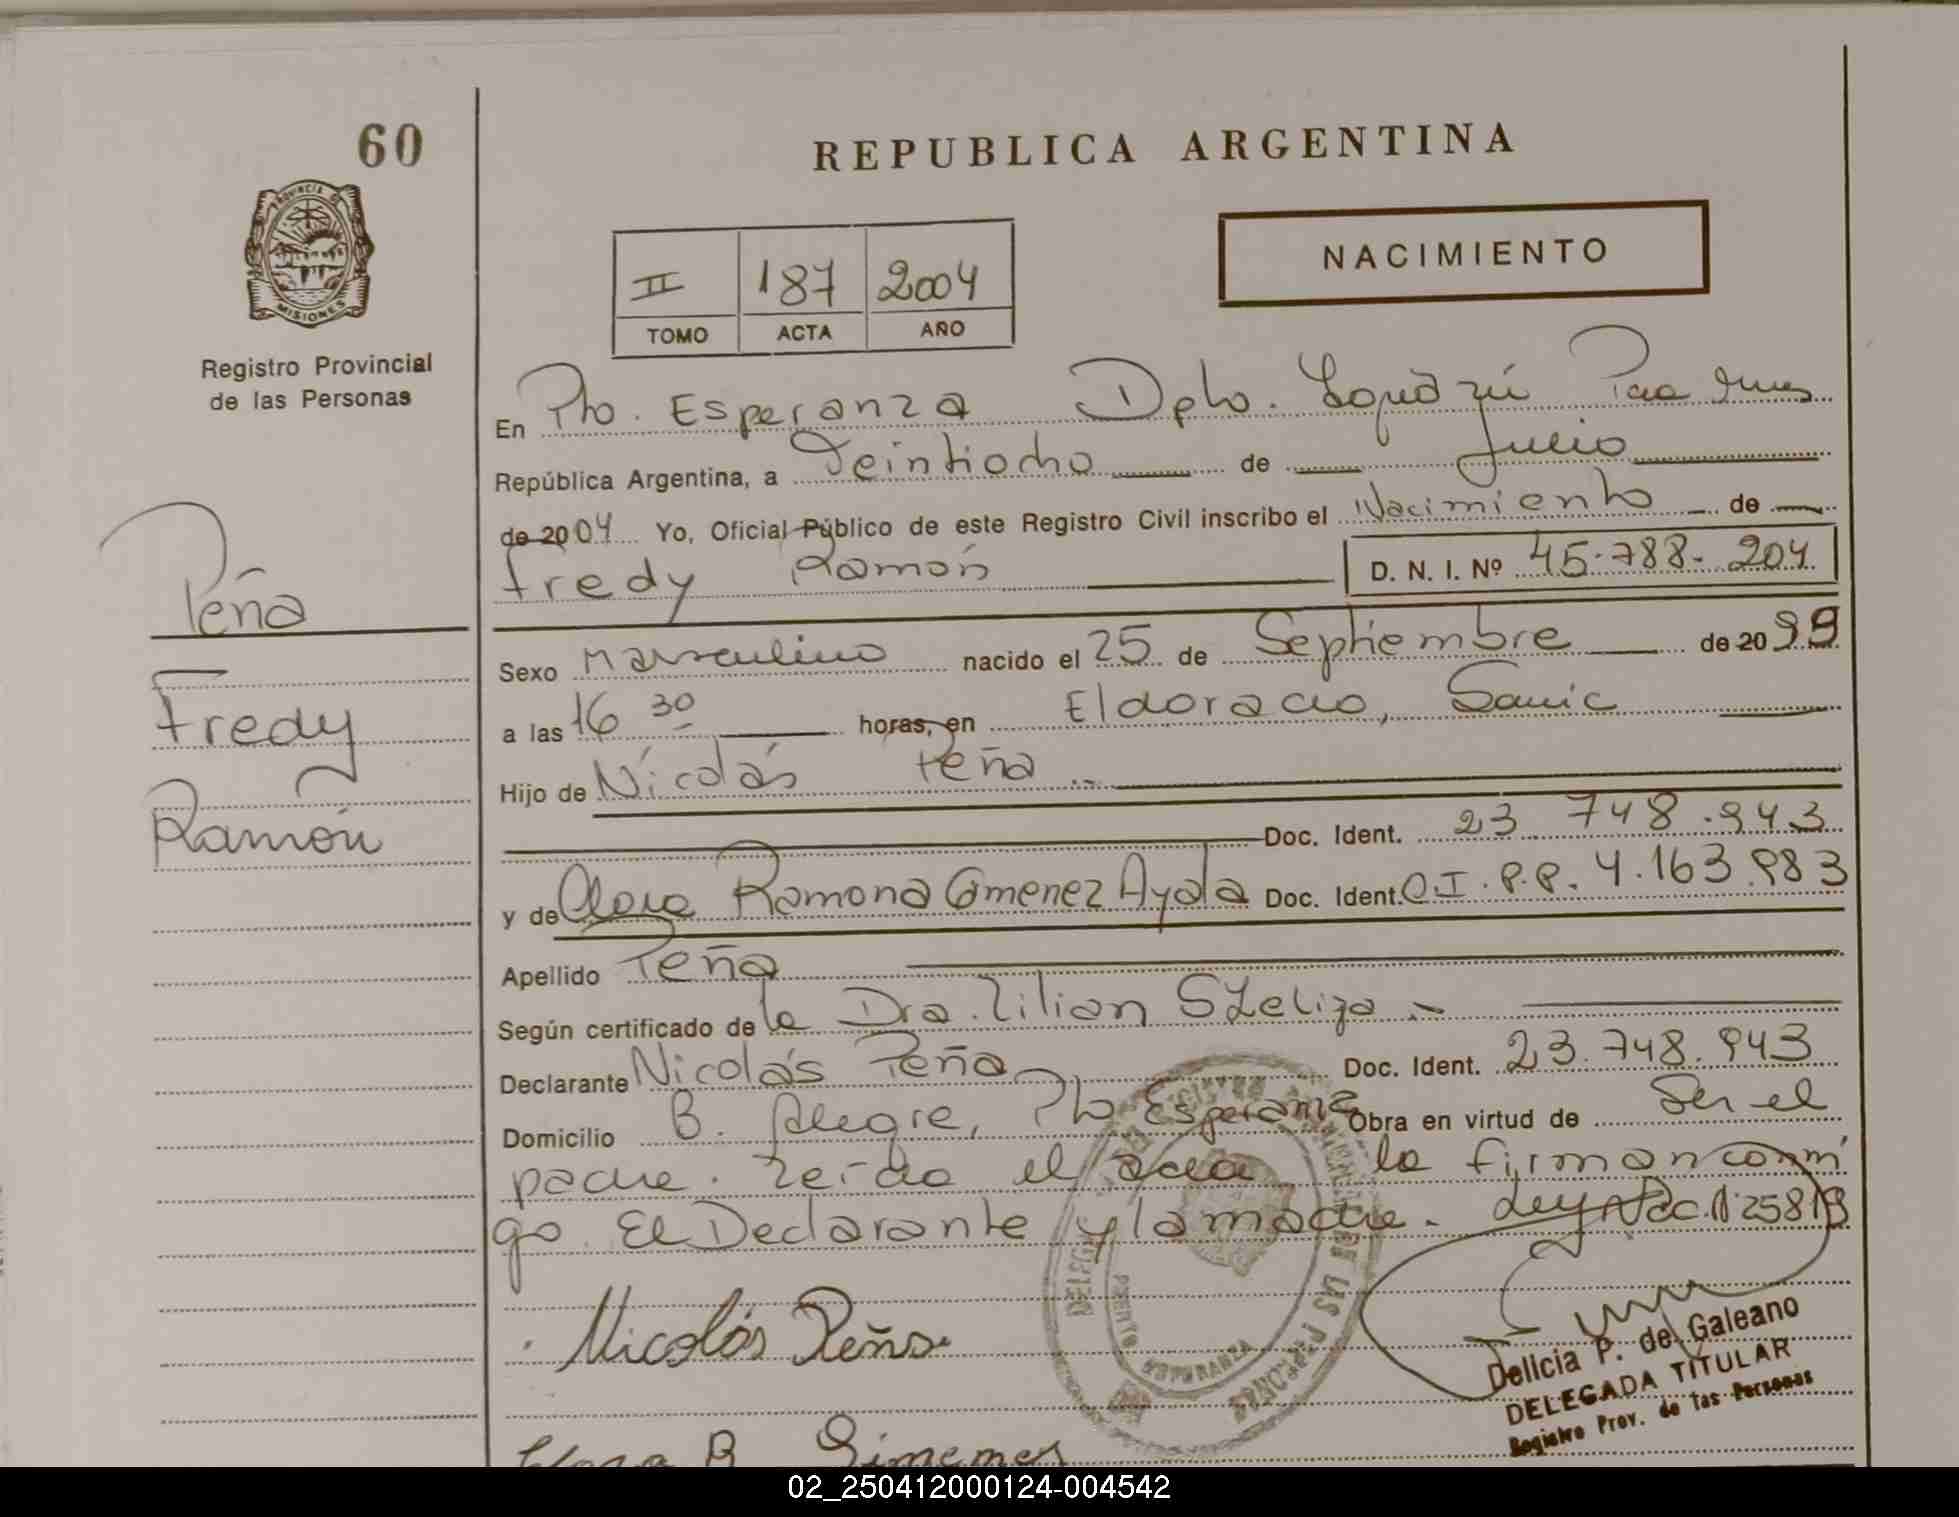 60
REPUBLICA ARGENTINA
PROVINCIA DE
MISIONES
Registro Provincial
de las Personas
II 187 2004
TOMO ACTA AÑO
NACIMIENTO
En Pto. Esperanza Dpto. Iguazú Pcia Mnes
República Argentina, a Veintiocho de Julio
de 2004 Yo, Oficial Público de este Registro Civil inscribo el Nacimiento de
Fredy Ramón D. N. I. Nº 45.788.204
Peña
Fredy
Ramón
Sexo Masculino nacido el 25 de Septiembre de 20 99
a las 16 30 horas, en Eldorado, Samic
Hijo de Nicolás Peña
Doc. Ident. 23 748.943
y de Clara Ramona Gimenez Ayala Doc. Ident. C.I.P.P. 4.163.983
Apellido Peña
Según certificado de la Dra. Lilian
Declarante Nicolás Peña Doc. Ident. 23.748.943
Domicilio B. Alegre, Pto Esperanza Obra en virtud de Ser el
padre. Leída el acta, la firman conmi
go El Declarante y la madre. Ley Nac. Nº 25819
Nicolás Peña
Delicia P. de Galeano
DELEGADA TITULAR
Registro Prov. de las Personas
DE LAS PERSONAS
PUERTO ESPERANZA
Clara R Gimenez
02_250412000124-004542